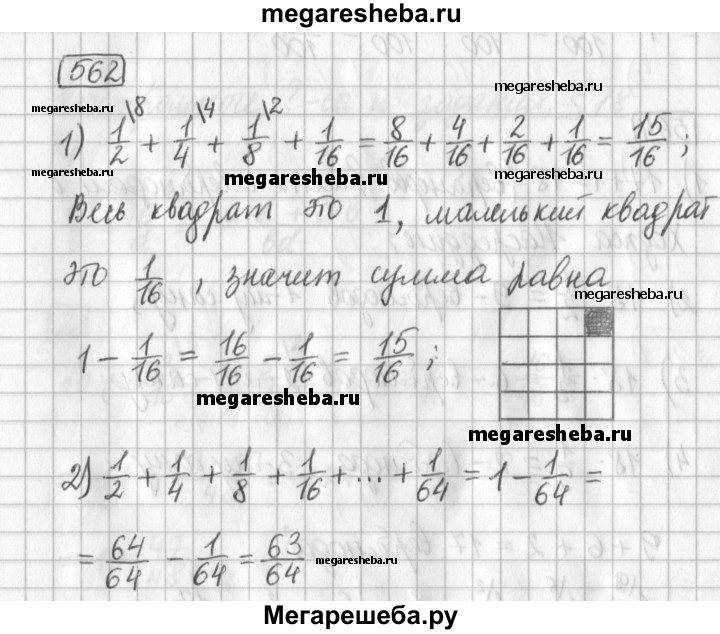 megaresheba.ru
562
megaresheba.ru
megaresheba.ru
1) 1/2 \8 + 1/4 \4 + 1/8 \2 + 1/16 = 8/16 + 4/16 + 2/16 + 1/16 = 15/16 ;
megaresheba.ru
megaresheba.ru
Весь квадрат это 1, маленький квадрат
это 1/16 , значит сумма равна
megaresheba.ru
1 - 1/16 = 16/16 - 1/16 = 15/16 ;
megaresheba.ru
megaresheba.ru
2) 1/2 + 1/4 + 1/8 + 1/16 + ... + 1/64 = 1 - 1/64 =
= 64/64 - 1/64 = 63/64
megaresheba.ru
Мегарешеба.ру